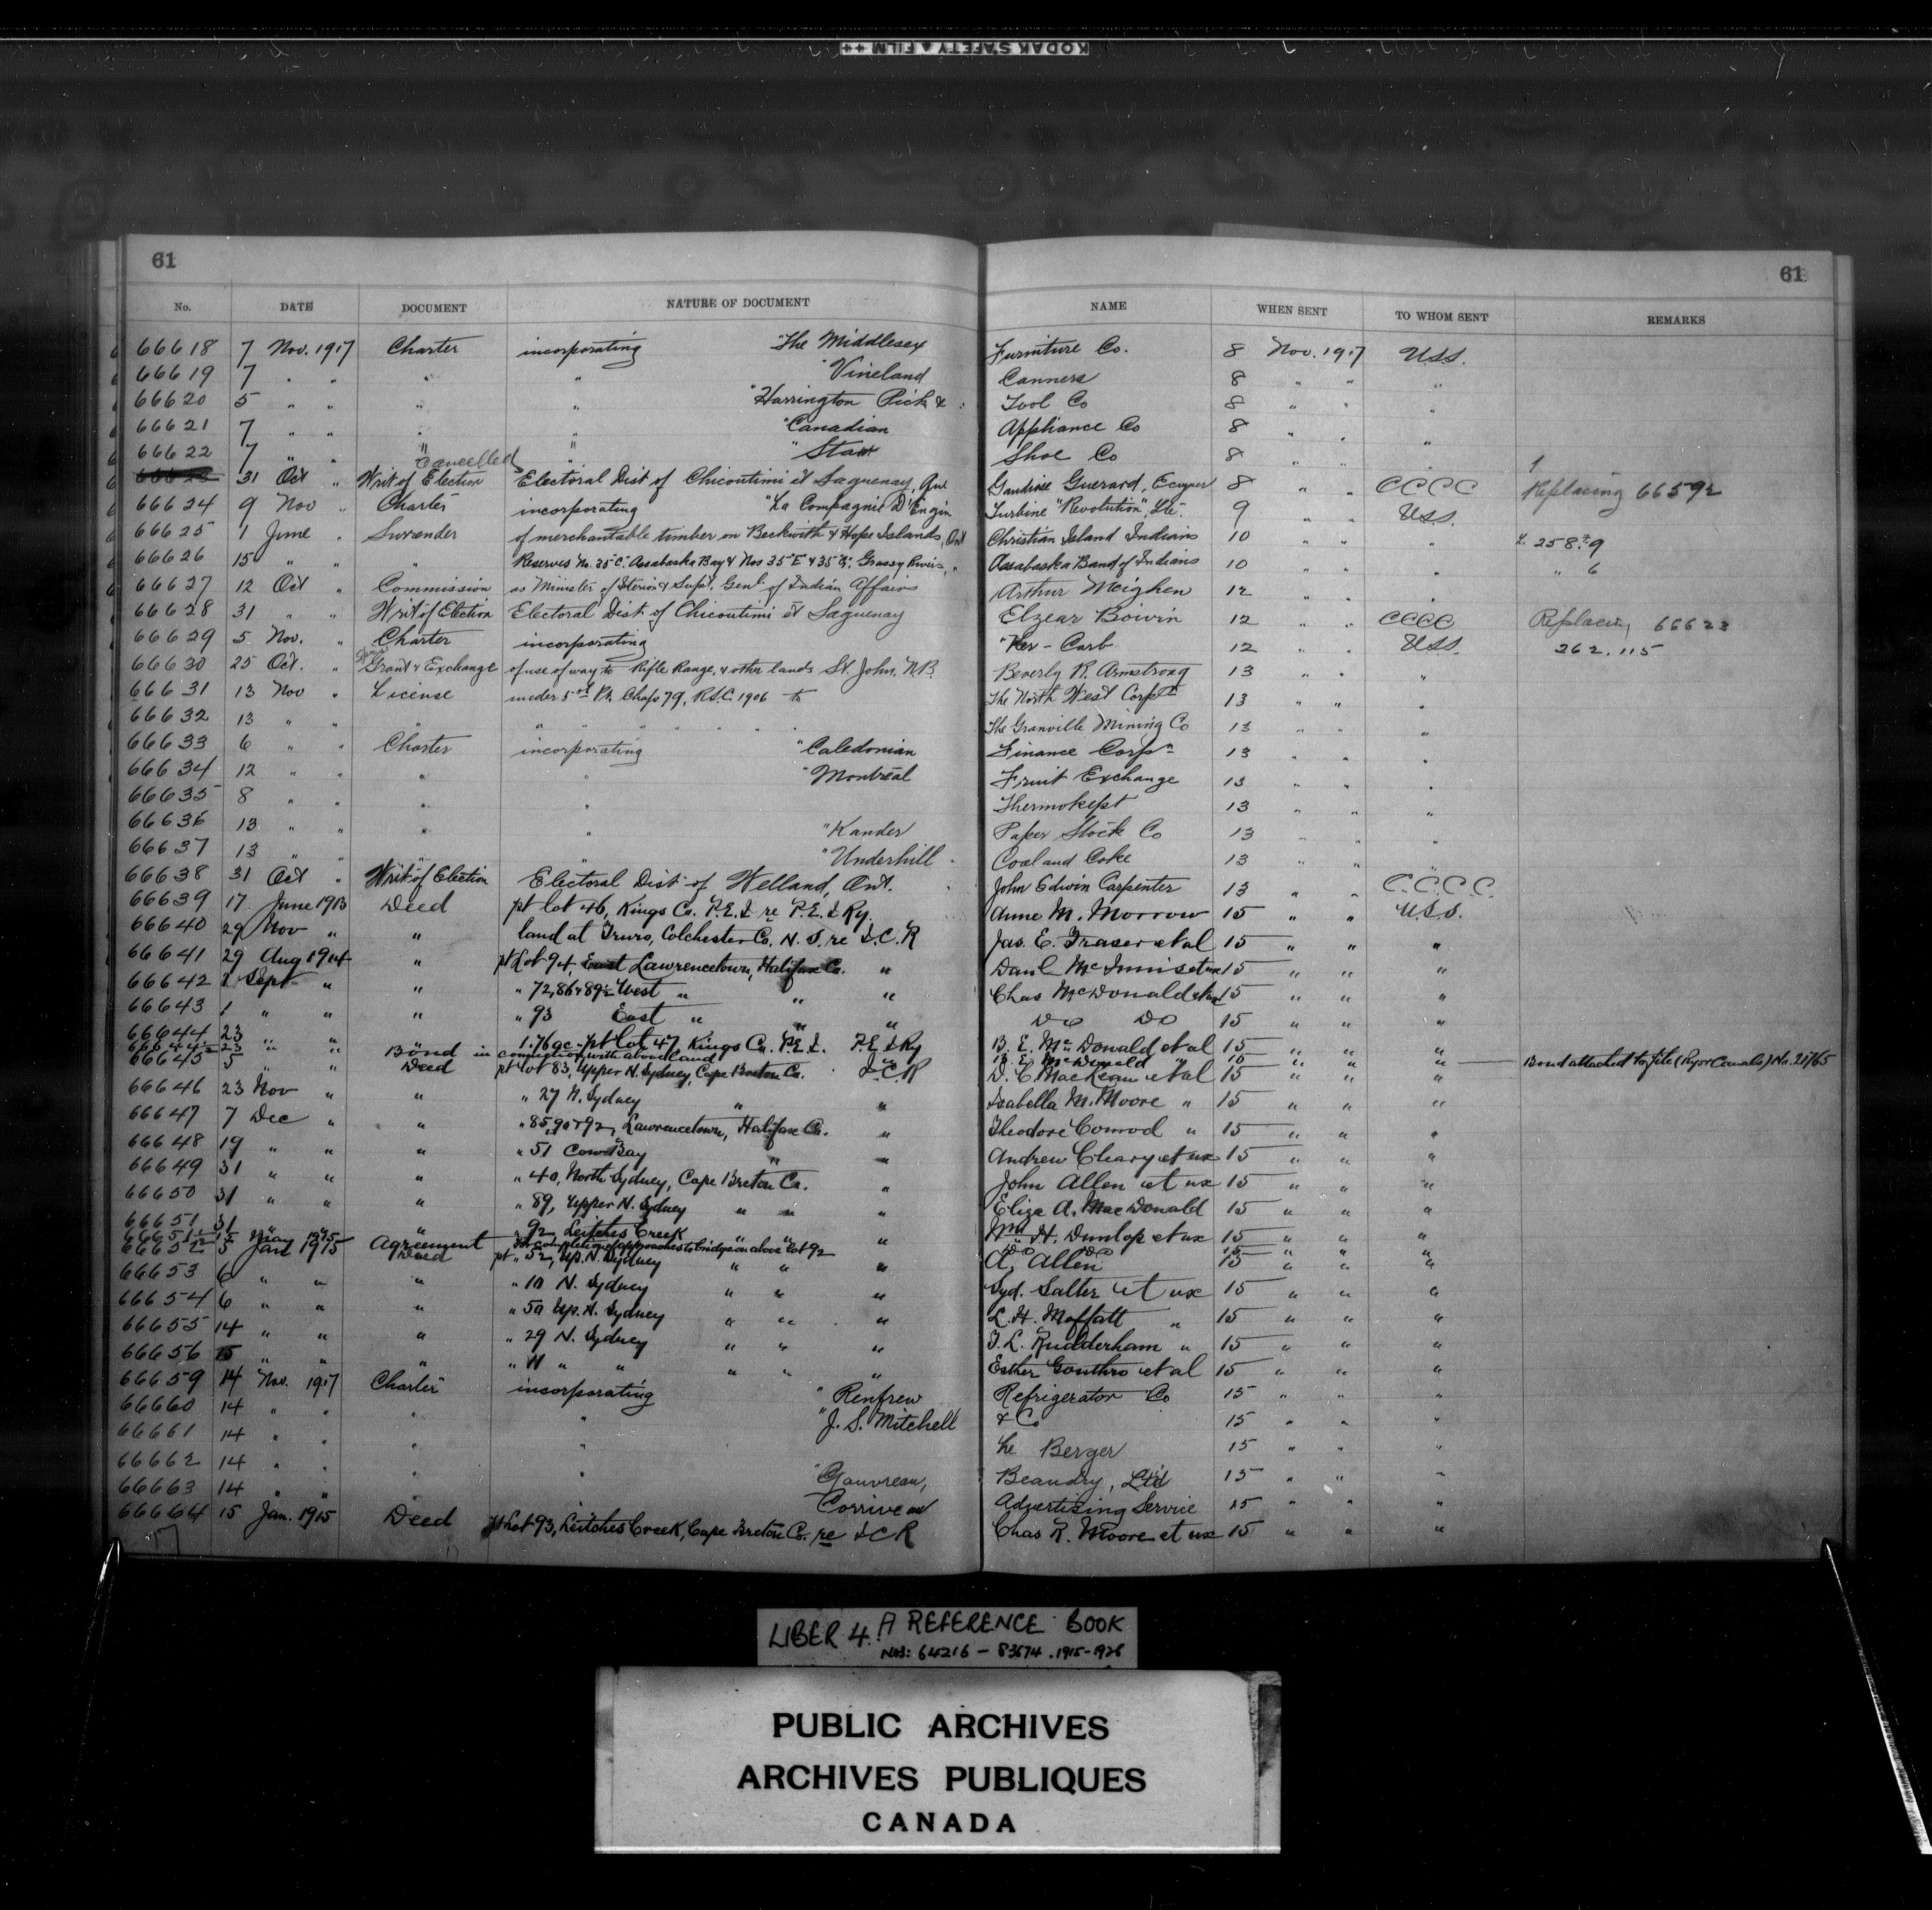 KODAK SAFETY ▲ FILM ++
61 61
No. DATE DOCUMENT NATURE OF DOCUMENT NAME WHEN SENT TO WHOM SENT REMARKS
66618 7 Nov. 1917 Charter incorporating "The Middlesex Furniture Co. 8 Nov. 1917 U.S.S.
66619 7 " " " " "Vineland Canners 8 " " "
66620 5 " " " " "Harrington Pick & Tool Co 8 " " "
66621 7 " " " " "Canadian Appliance Co 8 " " "
66622 7 " " " " "Star Shoe Co 8 " " "
Cancelled
66623 31 Oct " Writ of Election Electoral Dist of Chicoutimi et Saguenay, Que Guerard, Ecuyer 8 " " CCCC Replacing 66592
66624 9 Nov " Charter incorporating "La Compagnie D'Engin Turbine "Revolution", Lte. 9 " " U.S.S.
66625 1 June " Surrender of merchantable timber on Beckwith & Hope Islands, Ont Christian Island Indians 10 " " " L. 258. 9
66626 15 " " " Reserves No. 35"C" Assabaska Bay & Nos 35"E" & 35 Grassy River, " Assabaska Band of Indians 10 " " " " 6
66627 12 Oct " Commission as Minister of Interior & Supt. Genl. of Indian Affairs Arthur Meighen 12 " " "
66628 31 " " Writ of Election Electoral Dist. of Chicoutimi et Saguenay Elzear Boivin 12 " " CCCC Replacing 66623
66629 5 Nov. " Charter incorporating "Ker-Carb 12 " " U.S.S. 262.115
66630 25 Oct. " Grant & Exchange of use of way to Rifle Range, & other lands St. John, N.B. Beverly R. Armstrong 13 " " "
66631 13 Nov " License under 5th Pt. Chap 79, R.S.C. 1906 to The North West Corpn 13 " " "
66632 13 " " " " " " " " The Granville Mining Co 13 " " "
66633 6 " " Charter incorporating "Caledonian Finance Corpn 13 " " "
66634 12 " " " " "Montreal Fruit Exchange 13 " " "
66635 8 " " " " Thermokept 13 " " "
66636 13 " " " " "Kander Paper Stock Co 13 " " "
66637 13 " " " " "Underhill Coal and Coke 13 " " "
66638 31 Oct " Writ of Election Electoral Dist. of Welland, Ont. John Edwin Carpenter 13 " " C.C.C.C.
66639 17 June 1913 Deed pt lot 46, Kings Co. P.E.I re P.E.I Ry. Anne M. Morrow 15 " " U.S.S.
66640 29 Nov " " land at Truro, Colchester Co, N.S. re I.C.R Jas. E. Fraser et al 15 " " "
66641 29 Aug 1914 " pt Lot 94, East Lawrencetown, Halifax Co. " Danl McInnis et ux 15 " " "
66642 1 Sept " " " 72,86 & 89½ West " " " Chas McDonald et ux 15 " " "
66643 1 " " " " 93 East " " " Do Do 15 " " "
66644 23 " " " 1.76 ac - pt lot 47, Kings Co. P.E.I. P.E.I Ry B. E. McDonald et al 15 " " "
66644½ 23 " " Bond in connection with above land B. E. McDonald " 15 " " " Bond attached to file (Rys & Canals) No. 21765
66645 5 " " Deed pt lot 83, Upper N. Sydney, Cape Breton Co. I.C.R D. C. MacKeam et al 15 " " "
66646 23 Nov " " " 27 N. Sydney " " Isabella M. Moore " 15 " " "
66647 7 Dec " " " 85,90 & 92, Lawrencetown, Halifax Co. " Theodore Conrod " 15 " " "
66648 19 " " " " 51 Cow Bay " " Andrew Cleary et ux 15 " " "
66649 31 " " " " 40, North Sydney, Cape Breton Co. " John Allen et ux 15 " " "
66650 31 " " " " 89, Upper N. Sydney " " " Eliza A. MacDonald 15 " " "
66651 31 " " " " 92, Leitches Creek " " " Wm H. Dunlop et ux 15 " " "
66651½ 15 May 1915 Agreement for completing of approaches to bridge on above lot 92 Do Do 15 " " "
66652 5 Jan 1915 Deed pt " 52, Up. N. Sydney " " " A. Allen 15 " " "
66653 6 " " " " 10 N. Sydney " " " Syd. Salter et ux 15 " " "
66654 6 " " " " 50 Up. N. Sydney " " " L. H. Moffatt " 15 " " "
66655 14 " " " " 29 N. Sydney " " " T. L. Rudderham " 15 " " "
66656 15 " " " " 11 " " " " " Esther Gouthro et al 15 " " "
66659 14 Nov. 1917 Charter incorporating "Renfrew Refrigerator Co 15 " " "
66660 14 " " " " "J. S. Mitchell & Co 15 " " "
66661 14 " " " " Le Berger 15 " " "
66662 14 " " " " "Gauvreau, Beaudry, Ltd 15 " " "
66663 14 " " " " Corriveau Advertising Service 15 " " "
66664 15 Jan. 1915 Deed pt Lot 93, Leitches Creek, Cape Breton Co. re I C R Chas R. Moore et ux 15 " " "
LIBER 4. A REFERENCE BOOK
NOS: 64216 - 83674. 1915-1926
PUBLIC ARCHIVES
ARCHIVES PUBLIQUES
CANADA